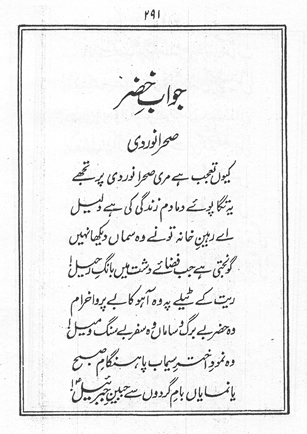 ۲۹۱
جوابِ خضر
صحرا نوردی
کیوں تعجب ہے مری صحرا نوردی پر تجھے
یہ تگاپوئے دمادم زندگی کی ہے دلیل
اے رہینِ خانہ تو نے وہ سماں دیکھا نہیں
گونجتی ہے جب فضائے دشت میں بانگِ رحیل!
ریت کے ٹیلے پہ وہ آہو کا بے پروا خرام
وہ حضر بے برگ و ساماں وہ سفر بے سنگ و میل!
وہ نمودِ اخترِ سیماب پا ہنگامِ صبح
یا نمایاں بامِ گردوں سے جبینِ جبرئیلؑ!